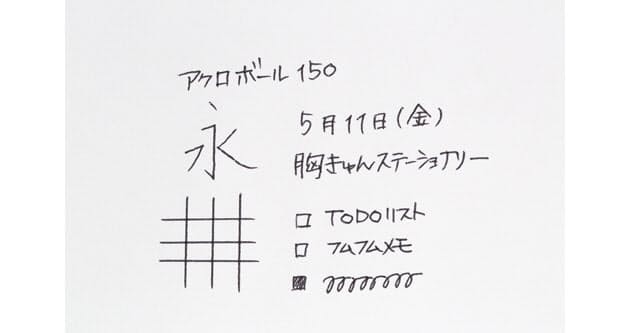 アクロボール150
永
5月17日(金)
胸きゅんステーショナリー
□ TODOリスト
□ フムフムメモ
■